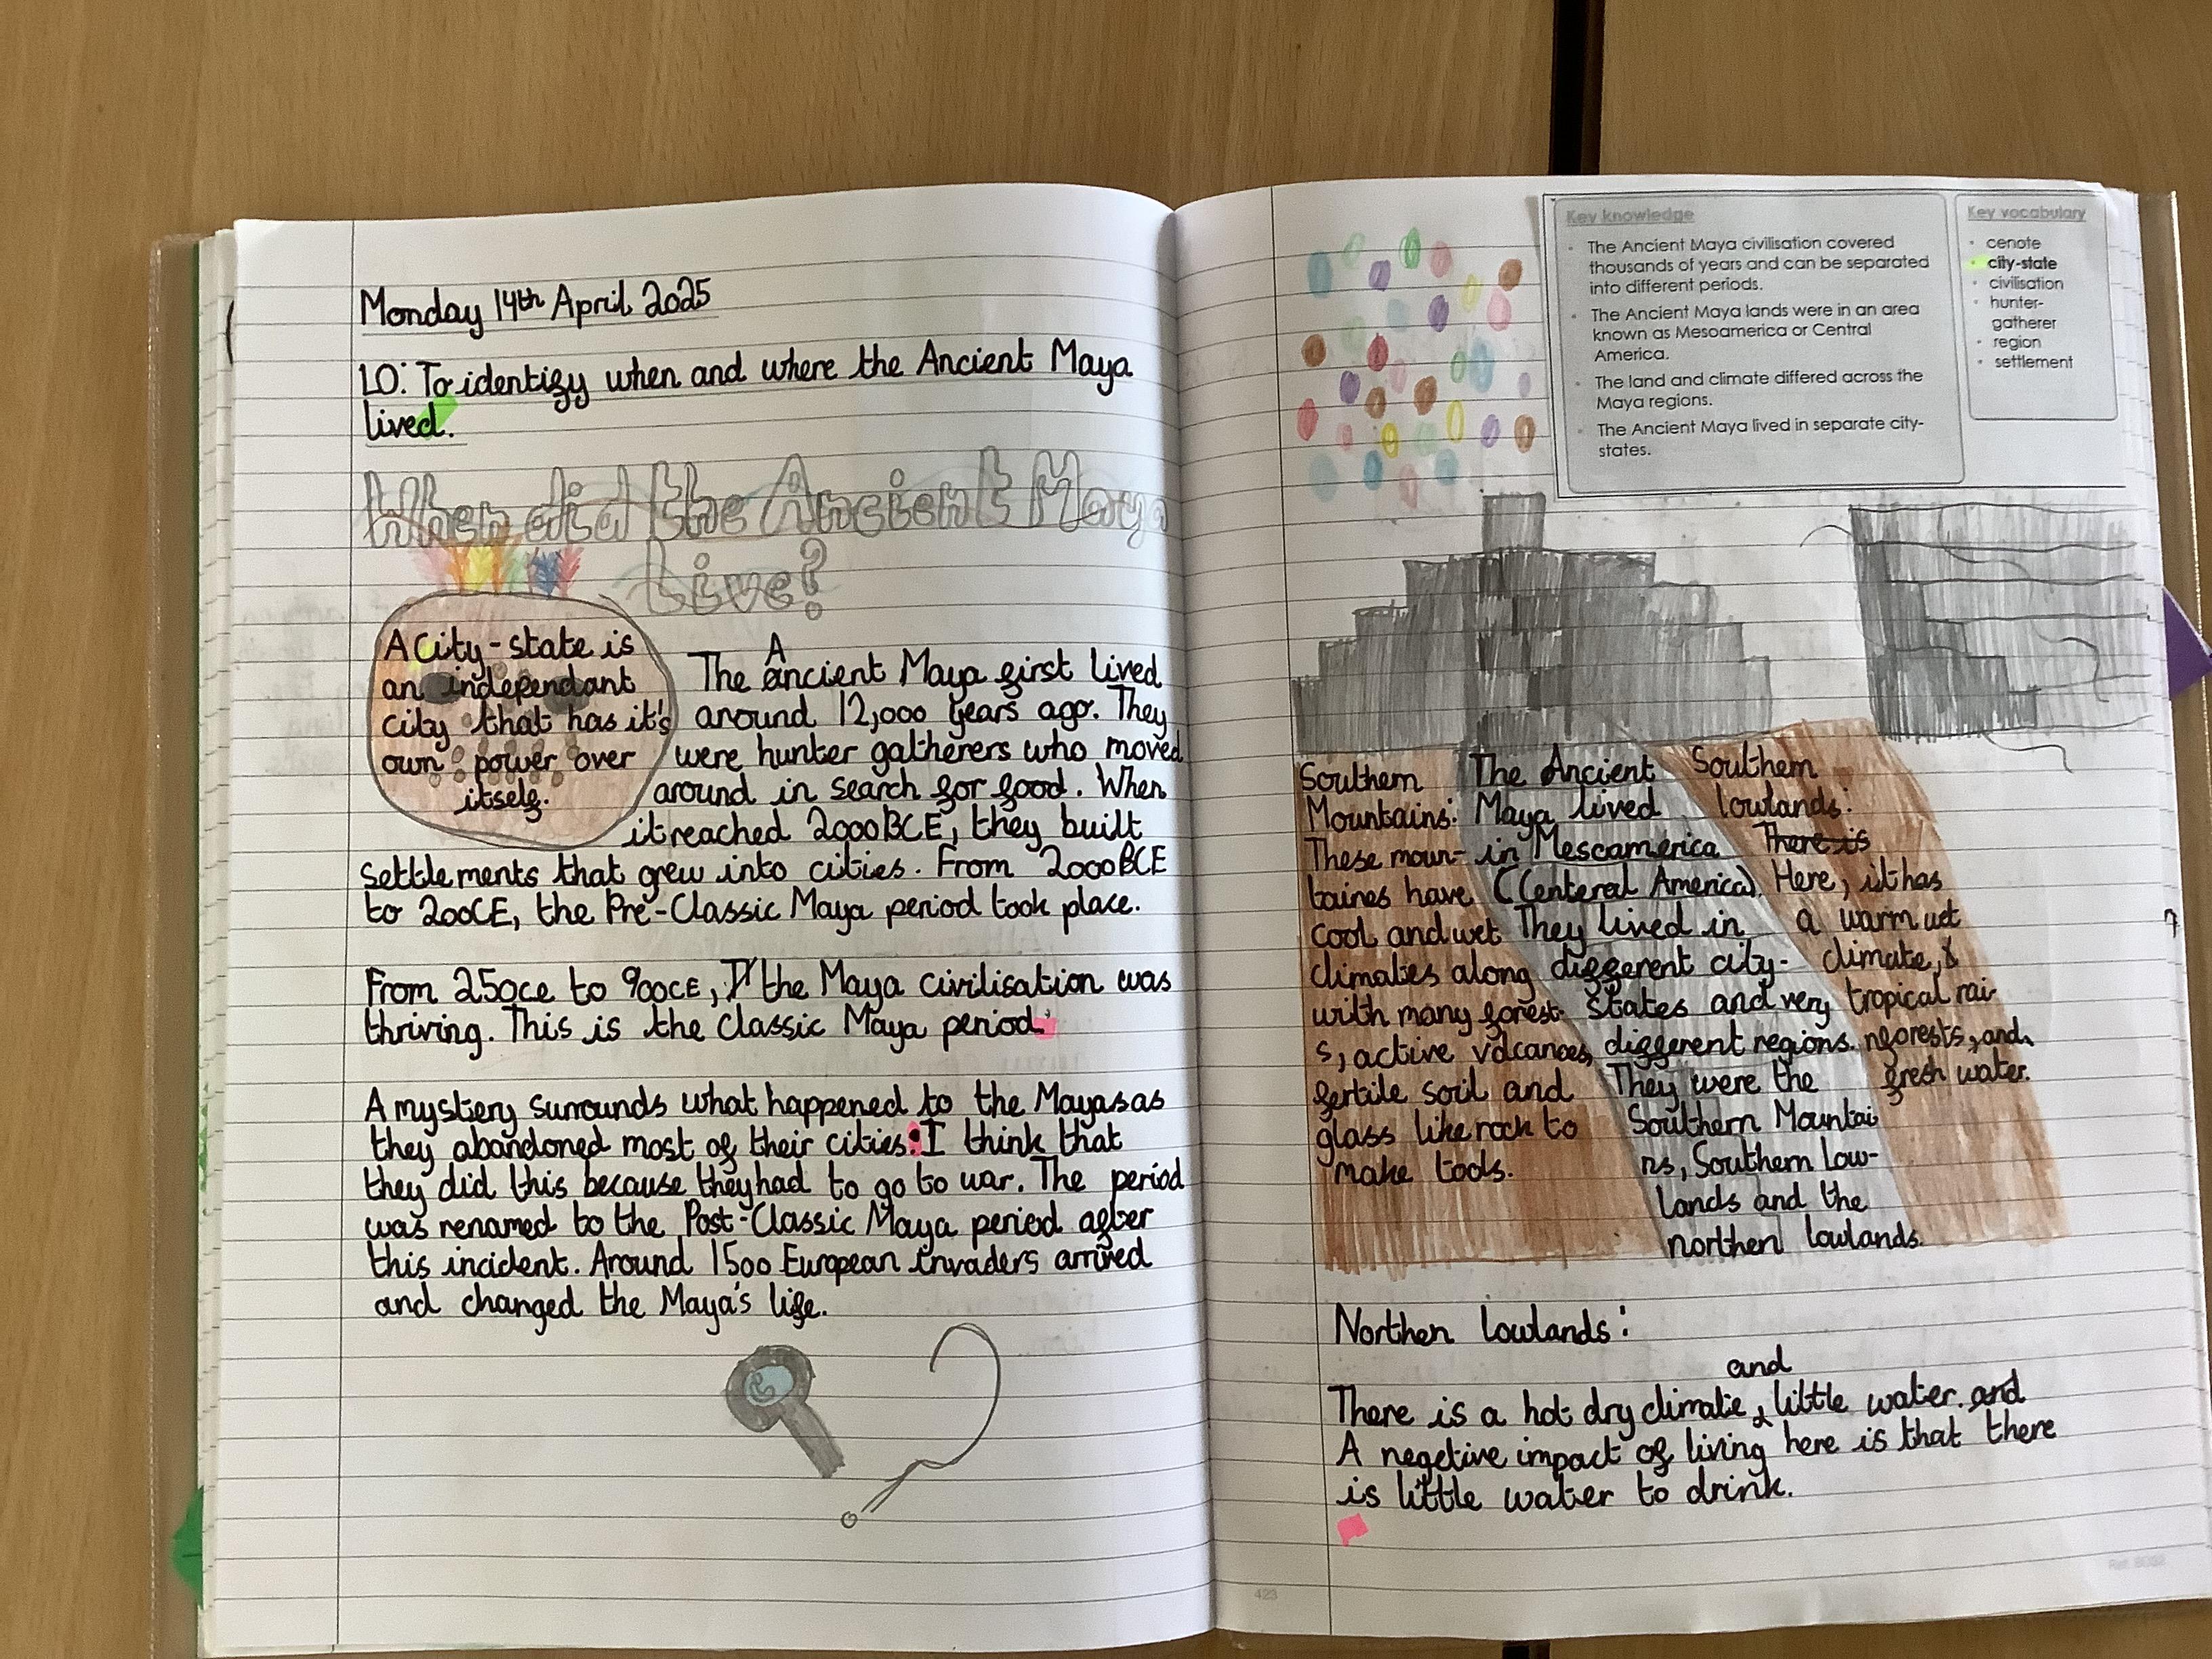 Monday 14th April 2025
LO: To identify when and where the Ancient Maya
lived.
When did the Ancient Maya
Live?
A city-state is
an independant
city that has it's
own power over
itself.
A
The ancient Maya first lived
around 12,000 years ago. They
were hunter gatherers who moved
around in search for food. When
it reached 2000BCE, they built
settlements that grew into cities. From 2000BCE
to 200CE, the Pre-Classic Maya period took place.
From 250CE to 900CE, the Maya civilisation was
thriving. This is the classic Maya period.
A mystery surrounds what happened to the Mayas as
they abandoned most of their cities. I think that
they did this because they had to go to war. The period
was renamed to the Post-Classic Maya period after
this incident. Around 1500 European invaders arrived
and changed the Maya's life.
Key knowledge
The Ancient Maya civilisation covered
thousands of years and can be separated
into different periods.
The Ancient Maya lands were in an area
known as Mesoamerica or Central
America.
The land and climate differed across the
Maya regions.
The Ancient Maya lived in separate city-
states.
Key vocabulary
cenote
city-state
civilisation
hunter-
gatherer
region
settlement
Southern
Mountains:
These moun-
taines have
cool and wet
climates along
with many forest-
s, active volcanoes,
fertile soil and
glass like rock to
make tools.
The Ancient
Maya lived
in Mesoamerica
(Centeral America).
They lived in
different city-
states and very
different regions.
They were the
Southern Mountai
ns, Southern Low-
lands and the
northern lowlands.
Southern
lowlands:
There is
Here, it has
a warm wet
climate,
tropical rai-
nforests, and
fresh water.
Northen lowlands:
and
There is a hot dry climate, little water. and
A negetive impact of living here is that there
is little water to drink.
423